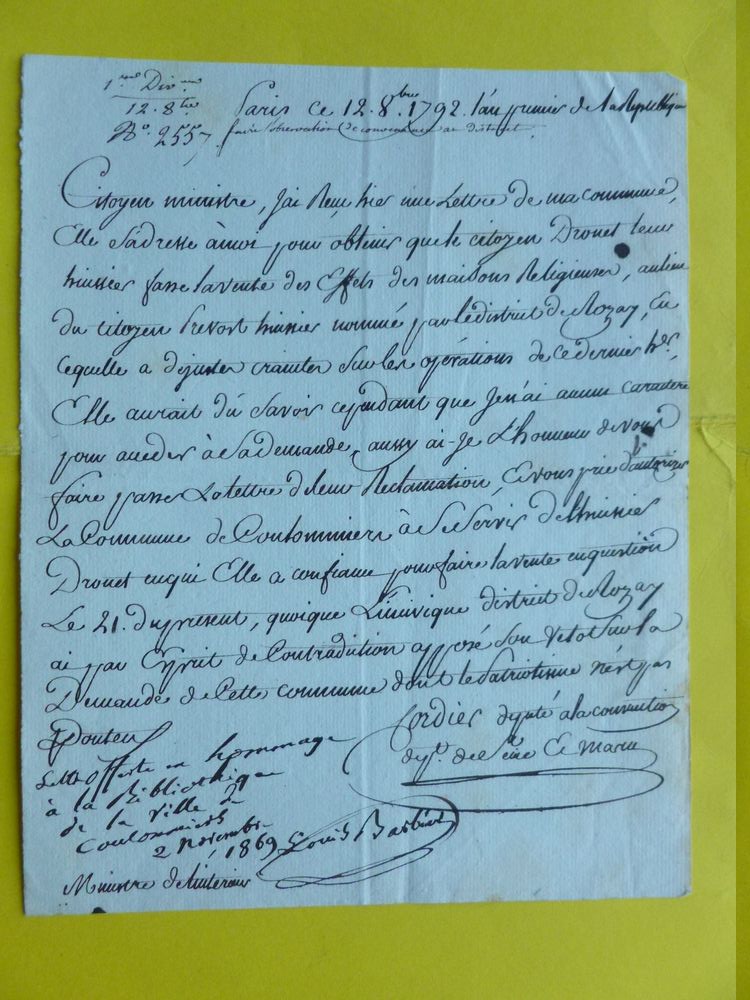 1.re Div.on
12. 8.bre
N.o 2557
Paris ce 12. 8.bre 1792. l'an premier de la Republique
faire observation de convenance au district.
Citoyen ministre, J'ai Reçu hier une Lettre de ma commune,
Elle s'adresse à moi pour obtenir que le citoyen Drouet leur
huissier fasse la vente des Effets des maisons Religieuses, au lieu
du citoyen Prevost huissier nommé par le district de Rozay, En
cequelle a dejustes craintes Sur les opérations de ce dernier
Elle aurait dû Savoir cependant que Je n'ai aucun caractere
pour acceder à Sa demande, aussy ai-je L'honneur de vous
faire passer La lettre de leur Reclamation, Et vous prie d'autoriser
La Commune de Coulommiers à Se Servir de l'huissier
Drouet en qui Elle a confiance pour faire la vente en question
Le 21. du present, quoique L'incivique district de Rozay
ai par Esprit de Contradiction apposé Son Vetot Sur la
Demande de Cette commune dont le Patriotisme n'est pas
Douteux
Cordier député a la convention
dep.t de Seine Et Marne
Lettre offerte en hommage
à la Bibliothèque
de la ville de
Coulommiers
2 Novembre
1869 Louis Barbier
Ministre de l'interieur